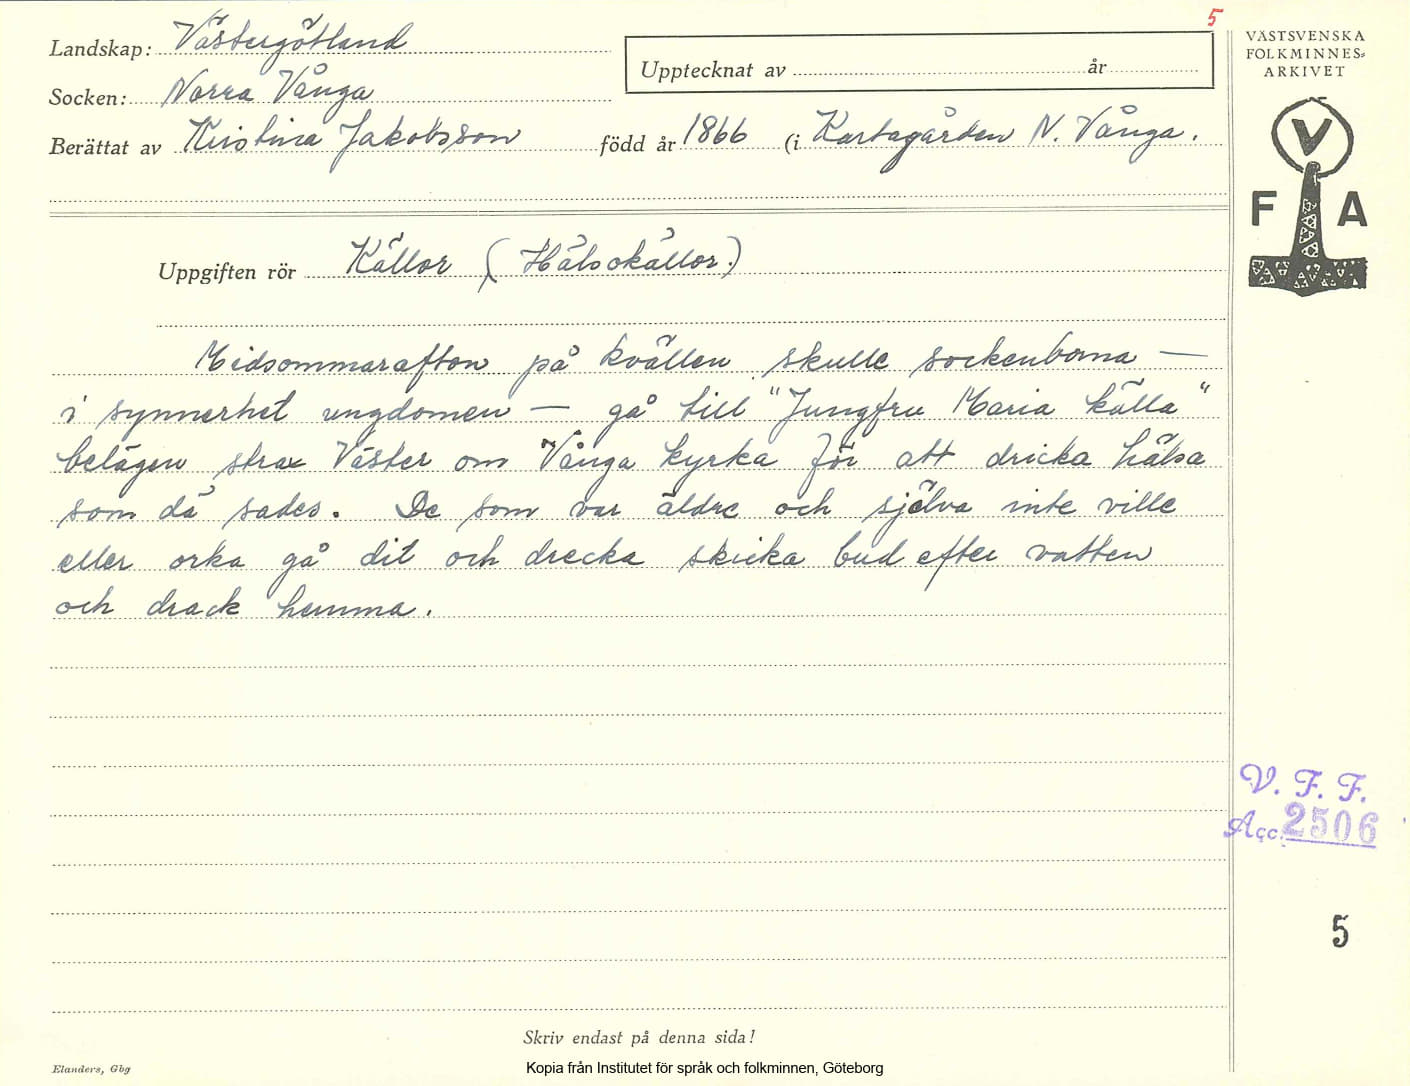 5
Landskap: Västergötland
Upptecknat av år
Socken: Norra Vånga
Berättat av Kristina Jakobsson född år 1866 (i Kartagården N. Vånga.
Uppgiften rör Källor (Hälsokällor.)
Midsommarafton på kvällen skulle sockenborna —
i synnerhet ungdomen — gå till "Jungfru Maria källa"
belägen strax Väster om Vånga kyrka för att dricka hälsa
som då sades. De som var äldre och själva inte ville
eller orka gå dit och drecka skicka bud efter vatten
och drack hemma.
VÄSTSVENSKA
FOLKMINNES-
ARKIVET
V
F A
V. F. F.
Acc. 2506
5
Skriv endast på denna sida!
Elanders, Gbg
Kopia från Institutet för språk och folkminnen, Göteborg